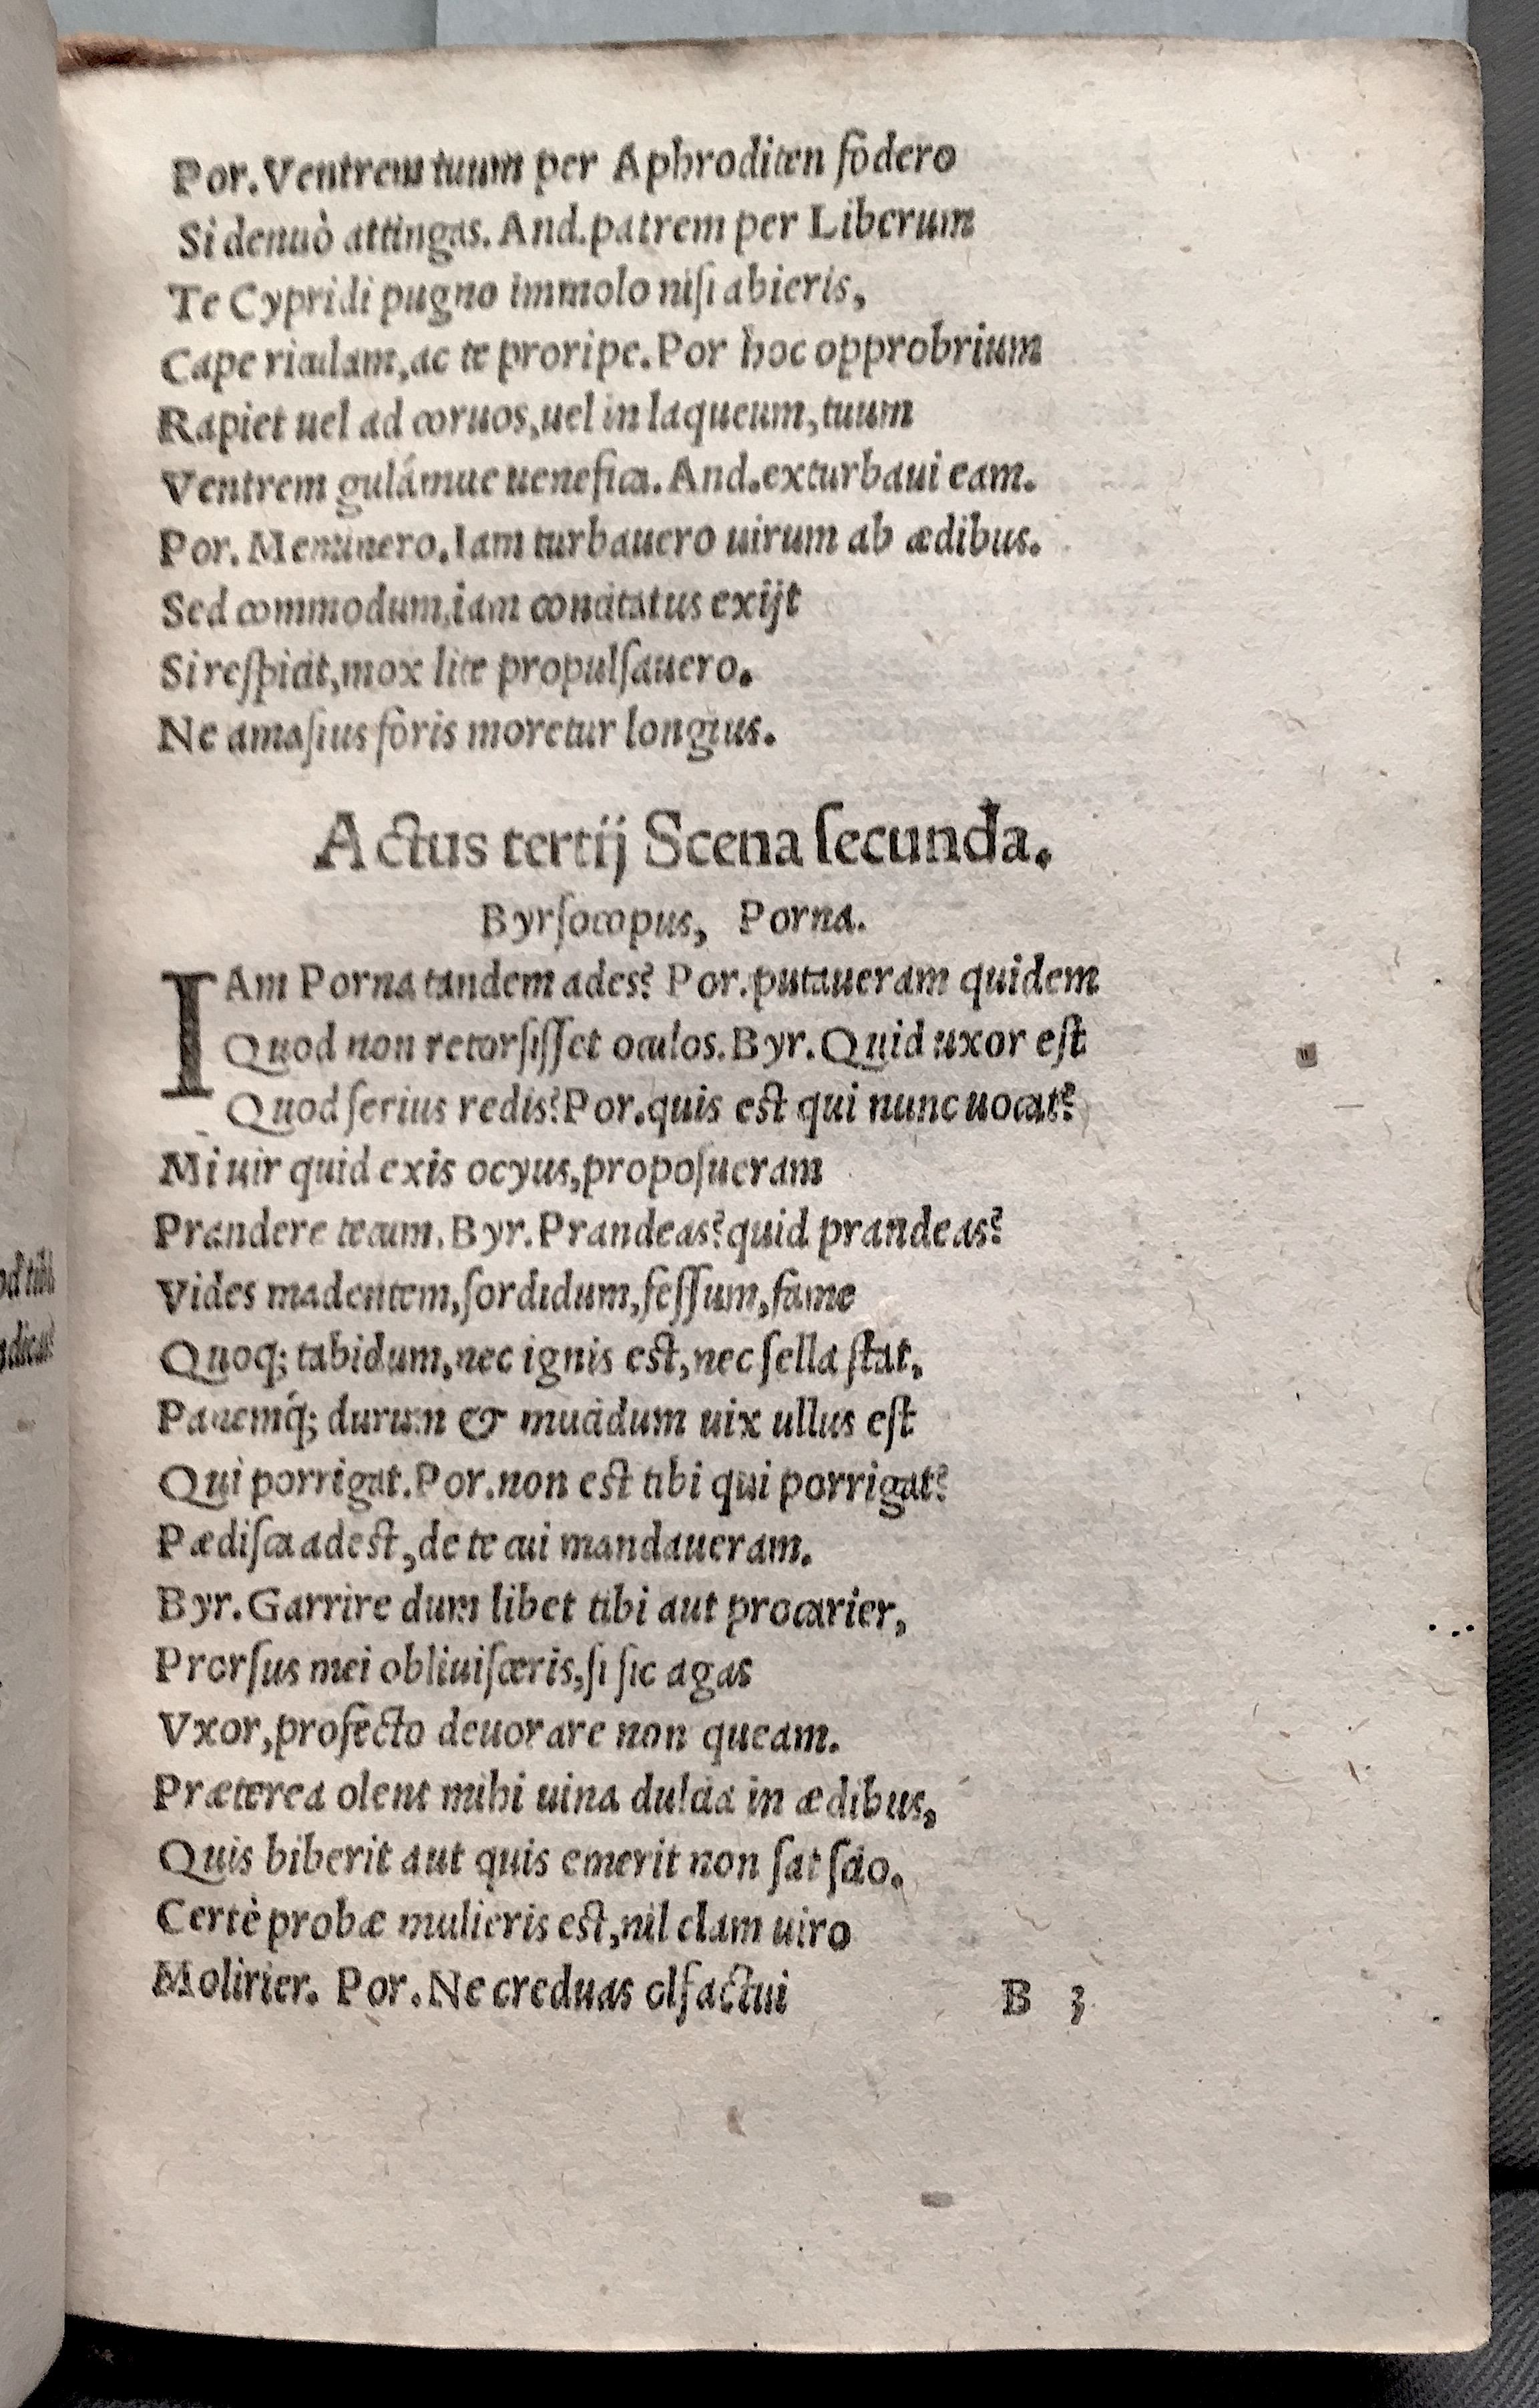 Por. Ventrem tuum per Aphroditen fodero
Si denuò attingas. And. patrem per Liberum
Te Cypridi pugno immolo niſi abieris,
Cape riculam, ac te proripe. Por hoc opprobrium
Rapiet uel ad coruos, uel in laqueum, tuum
Ventrem gulámue uenefica. And. exturbaui eam.
Por. Meminero. Iam turbauero uirum ab ædibus.
Sed commodum, iam concitatus exijt
Si reſpicit, mox lite propulſauero.
Ne amaſius foris moretur longius.
Actus tertij Scena ſecunda.
Byrſocopus, Porna.
IAm Porna tandem ades? Por. putaueram quidem
Quod non retorſiſſet oculos. Byr. Quid uxor eſt
Quod ſerius redis? Por. quis eſt qui nunc uocat?
Mi uir quid exis ocyus, propoſueram
Prandere tecum. Byr. Prandeas? quid prandeas?
Vides madentem, ſordidum, feſſum, fame
Quoq; tabidum, nec ignis eſt, nec ſella ſtat,
Panemq́; durum & mucidum uix ullus eſt
Qui porrigat. Por. non eſt tibi qui porrigat?
Pædiſca adeſt, de te cui mandaueram.
Byr. Garrire dum libet tibi aut procarier,
Prorſus mei obliuiſceris, ſi ſic agas
Vxor, profecto deuorare non queam.
Præterea olent mihi uina dulcia in ædibus,
Quis biberit aut quis emerit non ſat ſcio.
Certè probæ mulieris eſt, nil clam uiro
Molirier. Por. Ne creduas olfactui
B 3